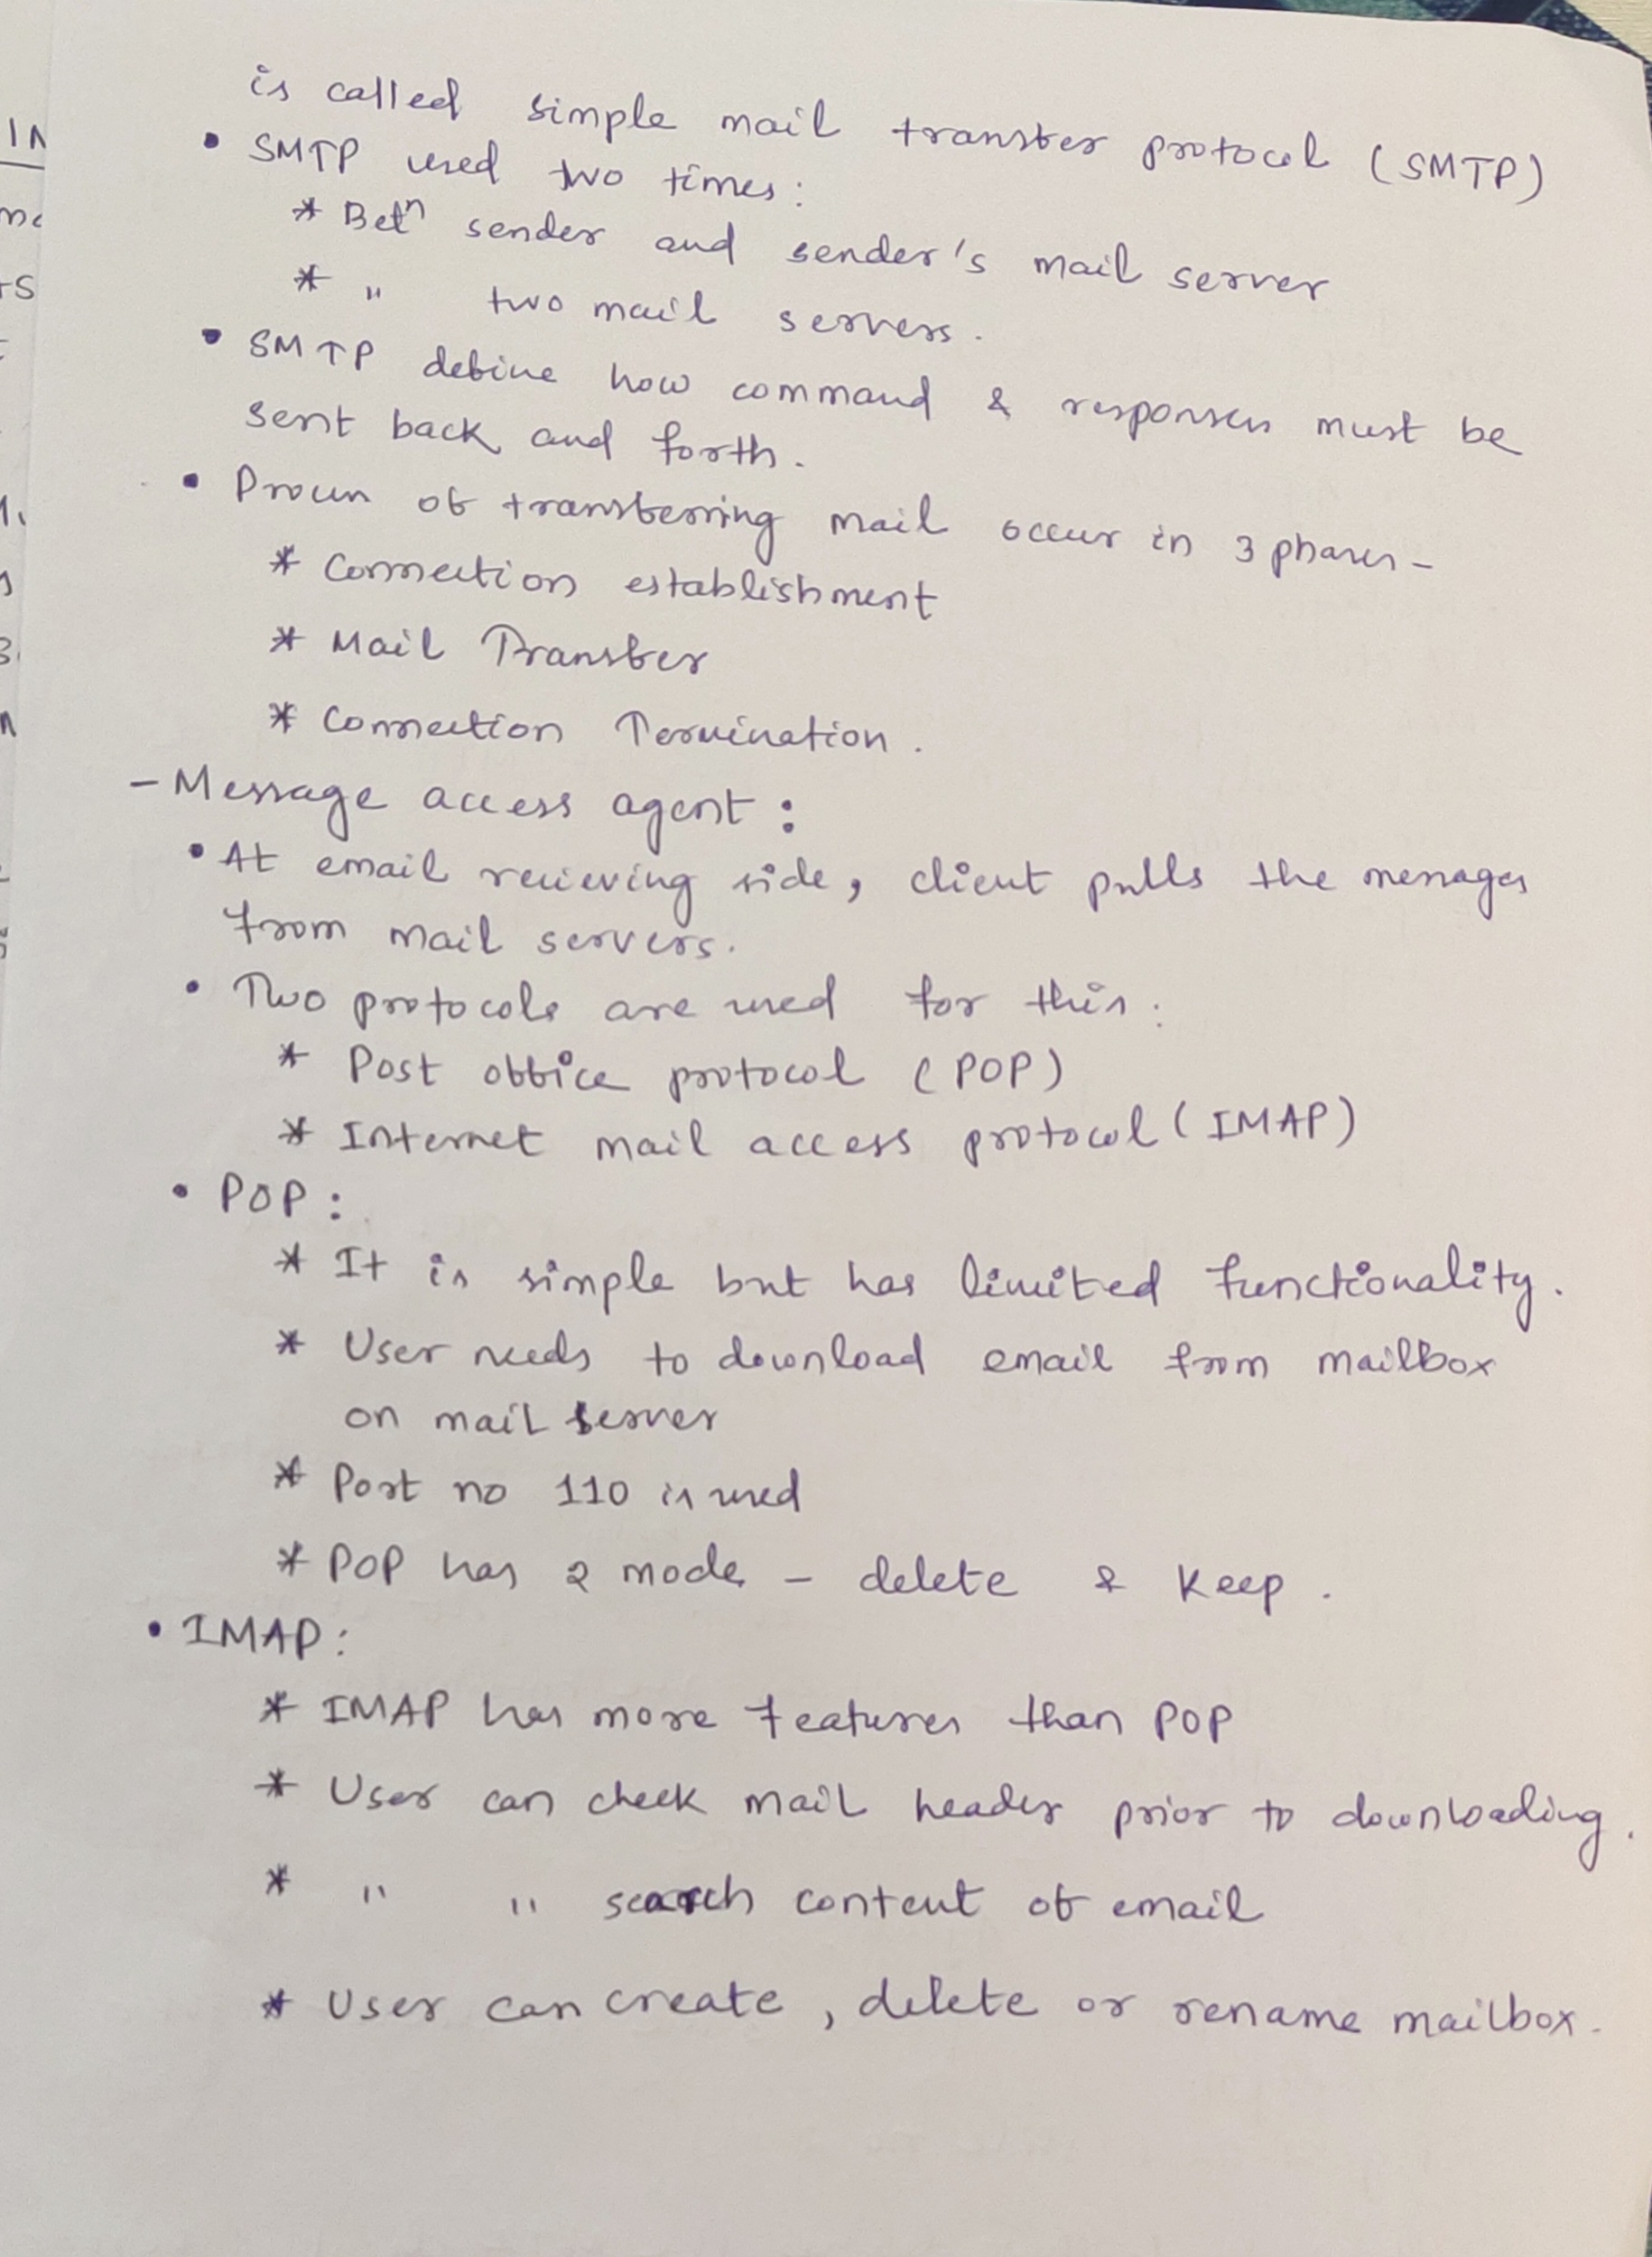 is called simple mail transfer protocol (SMTP)
• SMTP used two times:
* Betⁿ sender and sender's mail server
* " two mail servers.
• SMTP define how command & responses must be
sent back and forth.
• Process of transferring mail occur in 3 phases -
* Connection establishment
* Mail Transfer
* Connection Termination.
- Message access agent:
• At email recieving side, client pulls the messages
from mail servers.
• Two protocols are used for this:
* Post office protocol (POP)
* Internet mail access protocol (IMAP)
• POP:
* It is simple but has limited functionality.
* User needs to download email from mailbox
on mail server
* Port no 110 is used
* POP has 2 mode - delete & Keep.
• IMAP:
* IMAP has more features than POP
* User can check mail header prior to downloading.
* " " search content of email
* User can create, delete or rename mailbox.